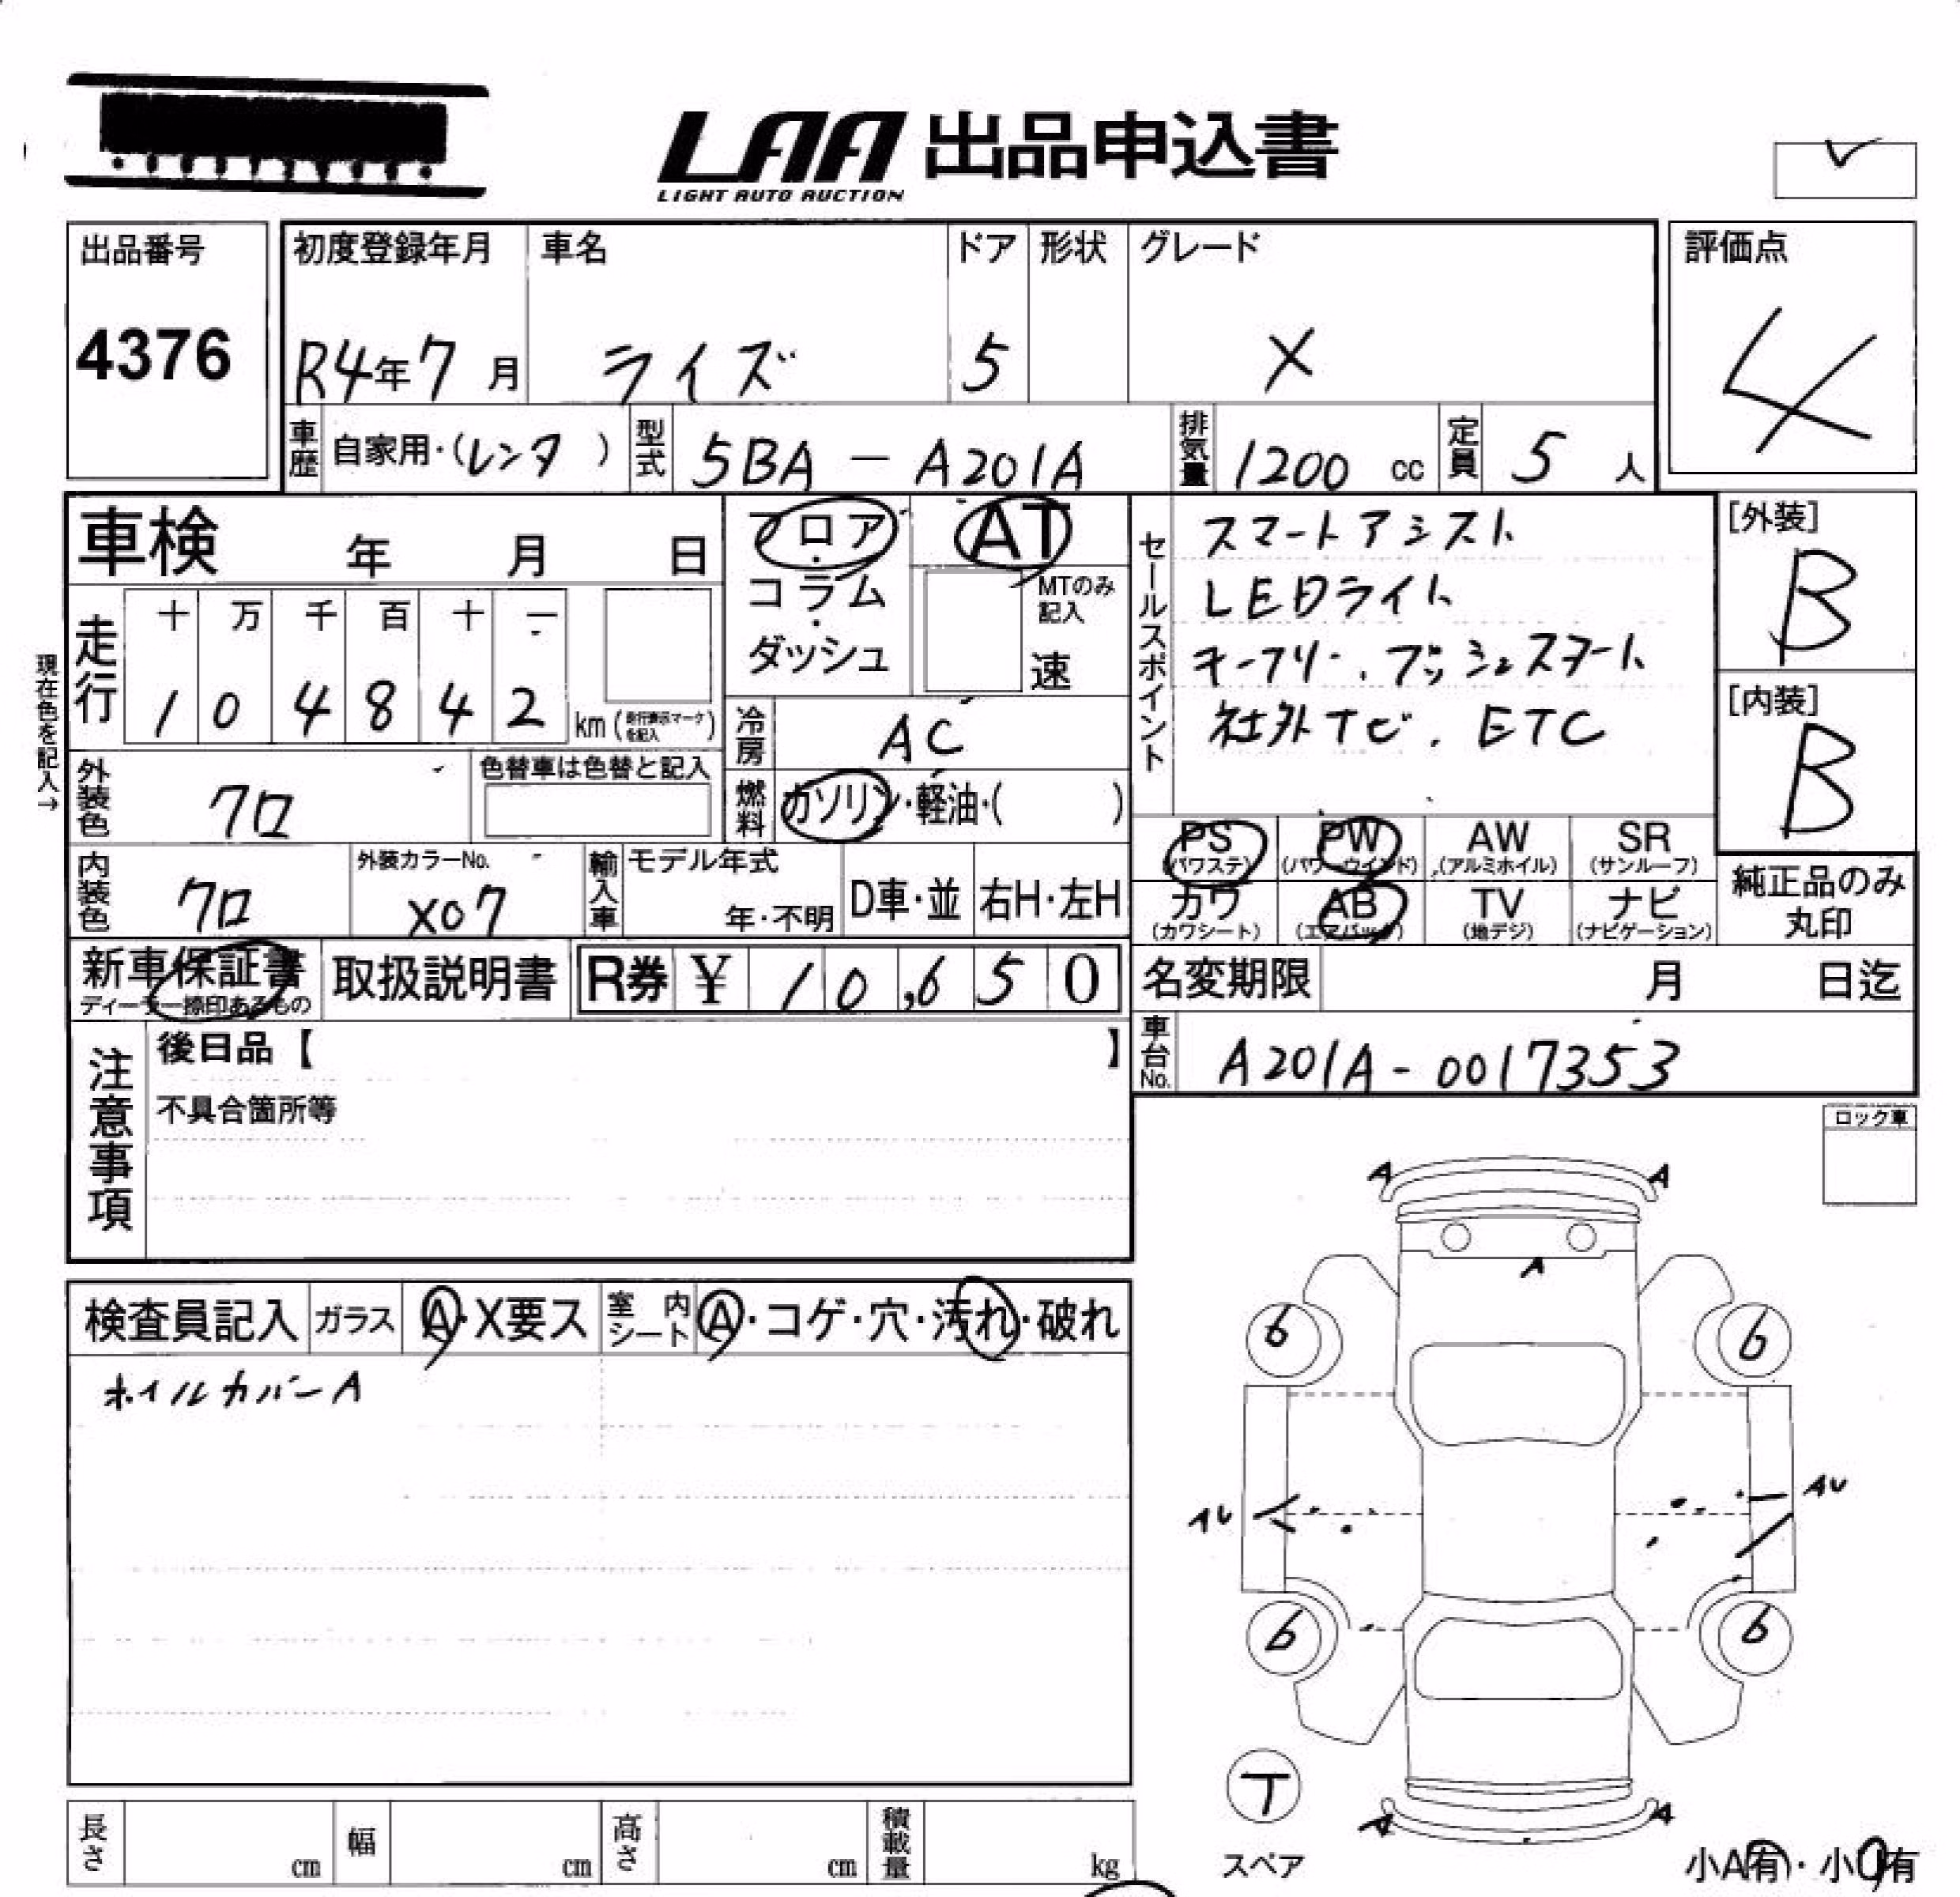 LAA 出品申込書
LIGHT AUTO AUCTION
出品番号 初度登録年月 車名 ドア 形状 グレード 評価点
4376 R4年7月 ライズ 5 X 4
車歴 自家用・(レンタ) 型式 5BA-A201A 排気量 1200 cc 定員 5 人
車検 年 月 日
フロア・コラム・ダッシュ
AT
MTのみ記入
速
セールスポイント
スマートアシスト
LEDライト
キーフリー.プッシュスタート
社外ナビ. ETC
[外装]
B
[内装]
B
現在色を記入→
走行 十 万 千 百 十 一
1 0 4 8 4 2 km (走行表示マークを記入)
冷房 AC
外装色 クロ 色替車は色替と記入
燃料 ガソリン・軽油・( )
内装色 クロ 外装カラーNo. X07
輸入車 モデル年式 年・不明 D車・並 右H・左H
PS (パワステ) PW (パワーウインド) AW (アルミホイル) SR (サンルーフ)
カワ (カワシート) AB (エアバック) TV (地デジ) ナビ (ナビゲーション)
純正品のみ丸印
新車保証書 取扱説明書 R券 ¥ 10,650
ディーラー捺印あるもの
名変期限 月 日迄
車台No. A201A-0017353
注意事項
後日品【 】
不具合箇所等
ロック車
検査員記入 ガラス A・X要ス 室内シート A・コゲ・穴・汚れ・破れ
ホイルカバーA
A A
A
6 6
AU AU
6 6
T
スペア
A A
小A有・小U有
長さ cm 幅 cm 高さ cm 積載量 kg